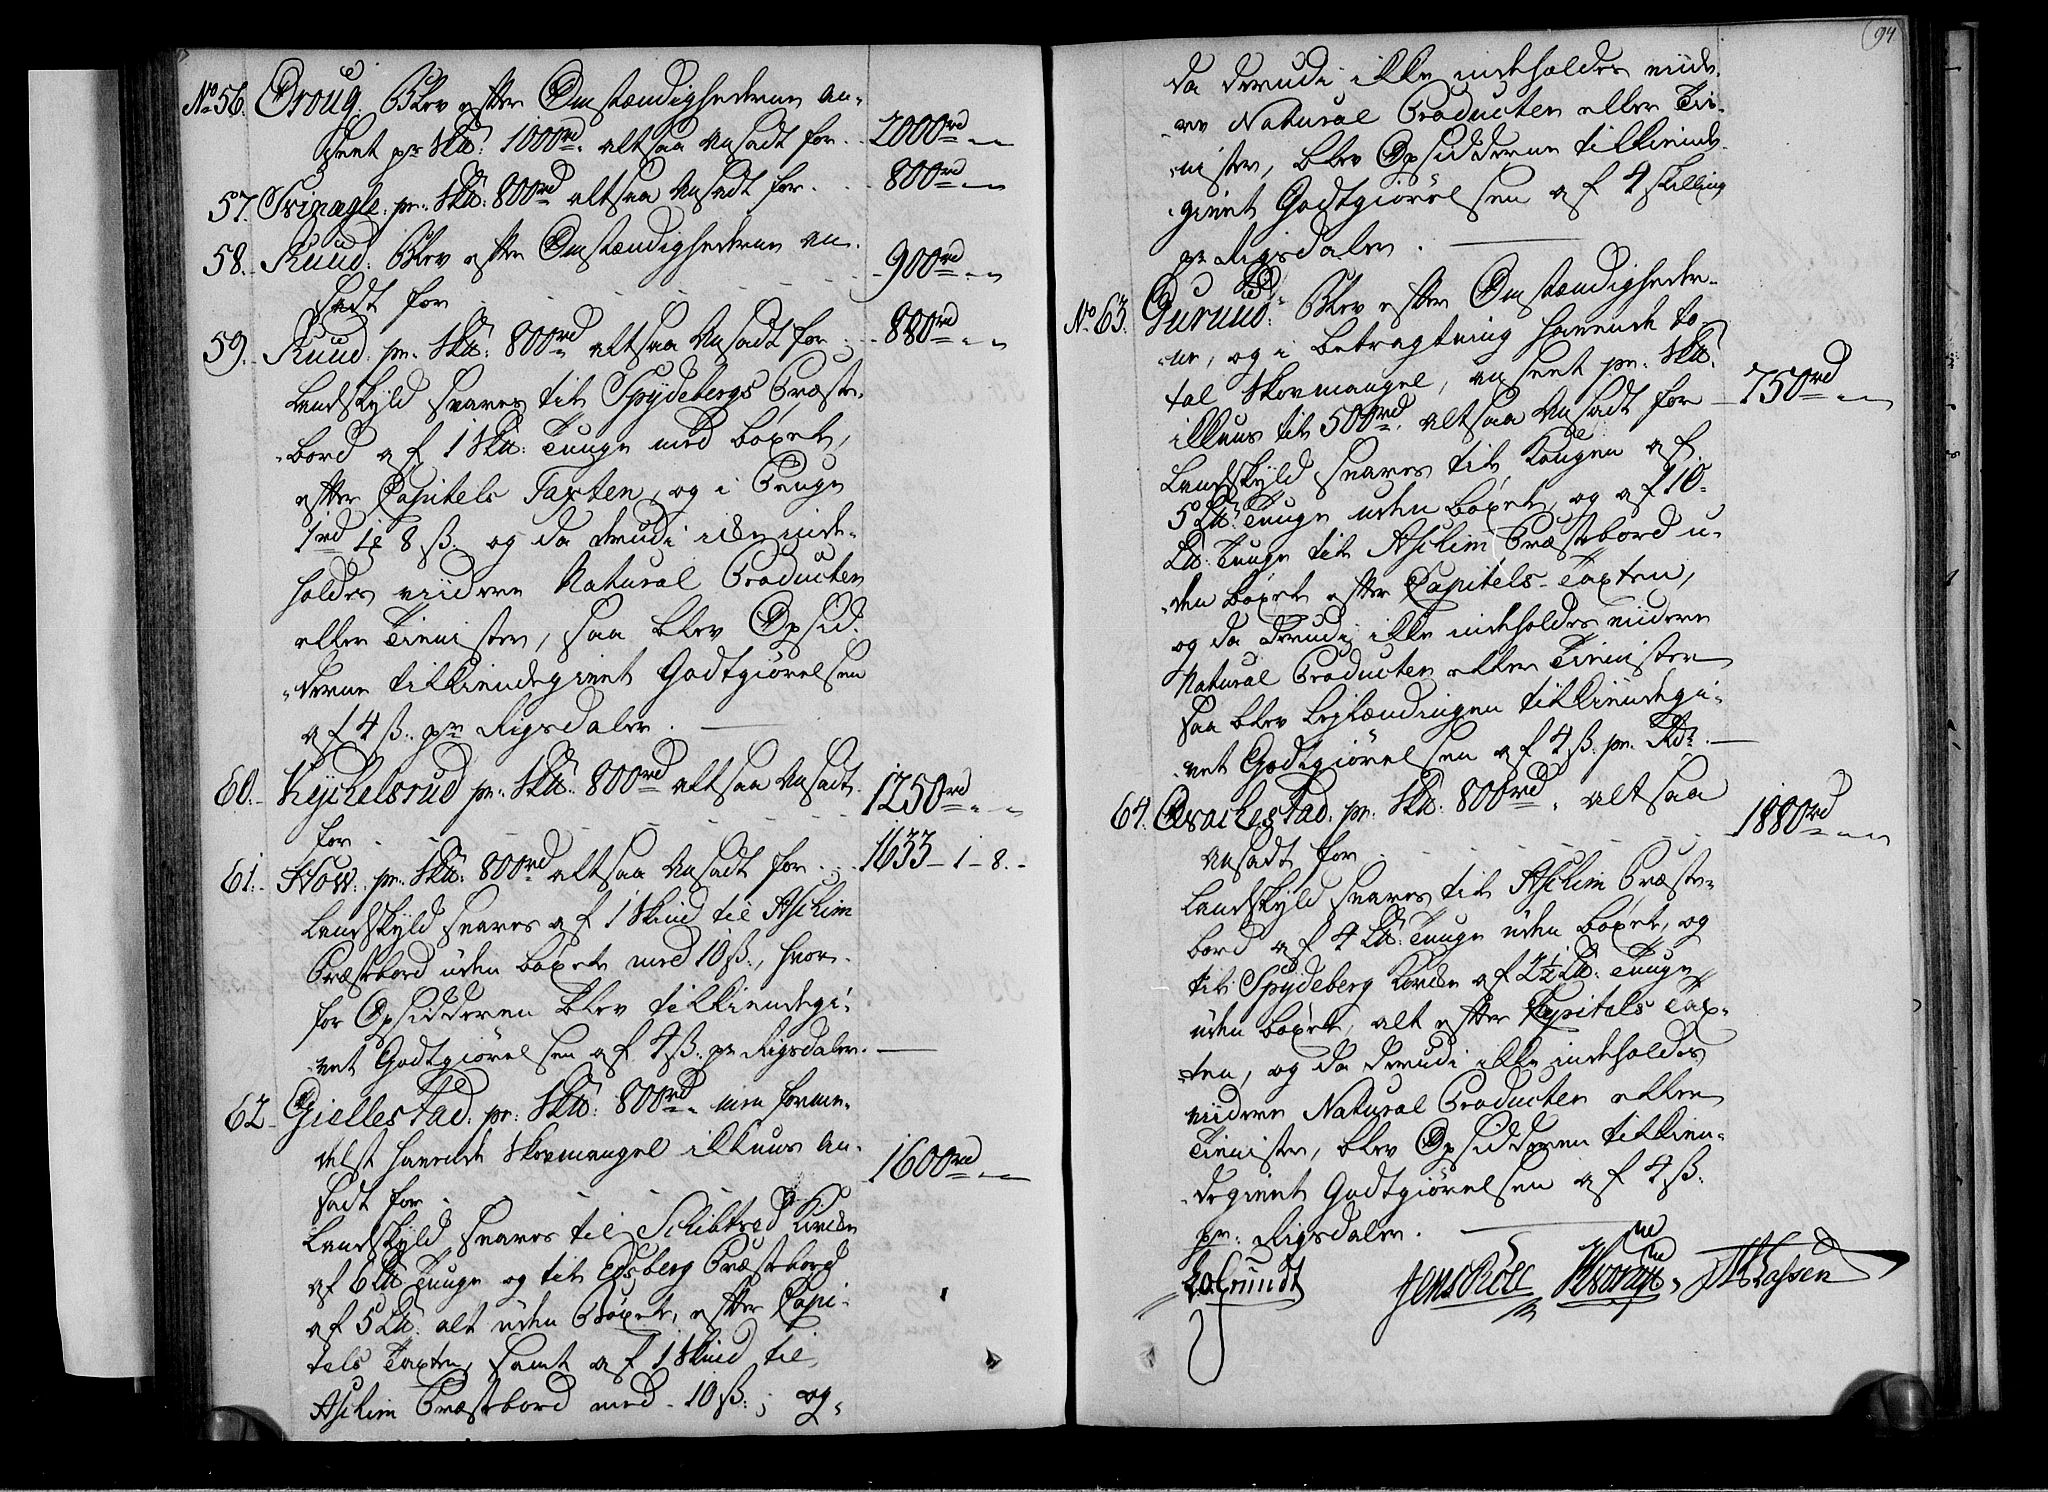 No 56. Oroug. Blev efter Omstændighederne an-
seet pr Skd: 1000rd. altsaa Ansadt for. . 2000rd „ „
57. Svinagle. pr. Skd: 800rd altsaa Ansadt for. . 800rd „ „
58. Ruud. Blev efter Omstændighederne an-
sadt for . . . . 900rd „ „
59. Ruud. pr. Skd: 800rd altsaa Ansadt for . . 880rd „ „
Landskyld svares til Spydebergs Præste-
bord af 1 Skd: Tunge med Boxel,
efter Capitels Taxten, og i Penge
1rd 1 8 ß. og da derudi ikke inde-
holdes viidere Natural Producter
eller Tienister, saa blev Opsid-
derne tilkiendegivet Godtgiørelsen
af 4 ß. pr Rigsdaler.
60. Kyckelsrud pr. Skd: 800rd altsaa Ansadt
for . . . . 1250rd „ „
61. How. pr. Skd: 800rd altsaa Ansadt for . . 1633 - 1 - 8.
Landskyld svares af 1 Skind til Aschim
Præstebord uden Boxel med 10 ß., hvor-
for Opsidderen blev tilkiendegi-
vet Godtgiørelsen af 4 ß. pr Rigsdaler.
62. Giellestad. pr: Skd: 800rd „ men forme-
delst havende Skovmangel ikkuns An-
sadt for . . . . 1600rd „ „
Landskyld svares til Schibtved Kircke
af 6 Ld Tunge og til Edsberg Præstebord
af 5 Ld: alt uden Boxel, efter Capi-
tels Taxten, samt af 1 Skind til
Aschim Præstebord med 10 ß.; og
94
da derudi ikke indeholdes viide-
re Natural Producter eller Tie-
nister, blev Opsidderne tilkiende-
givet Godtgiørelsen af 4 skilling
pr Rigsdaler.
No 63. Gurud. Blev efter Omstændighede-
ne, og i betragtning havende to-
tal Skovmangel, anseet pr. Skd:
ikkuns til 500rd. altsaa Ansadt for 750rd „ „
Landskyld svares til Kongen af
5 Ld: Tunge uden Boxel, og af 10
Ld: Tunge til Aschim Præstebord u-
den Boxel efter Capitels-Taxten,
og da derudi ikke indeholdes viidere
Natural Producter eller Tienister
saa blev Leylændingen tilkiendegi-
vet Godtgiørelsen af 4 ß. pr. Rdr.
64. Grachestad. pr. Skd: 800rd. altsaa
Ansadt for . . . . 1880rd „ „
Landskyld svares til Aschim Præste-
bord af 4 Ld: Tunge uden Boxel, og
til Spydeberg Kircke af 2½ Ld: Tunge
uden Boxel, alt efter Capitels Tax-
ten, og da derudi ikke indeholdes
viidere Natural Producter eller
Tienister, blev Opsidderen tilkien-
degivet Godtgiørelsen af 4 ß.
pr. Rigsdaler.
Grundt Jens Lassen